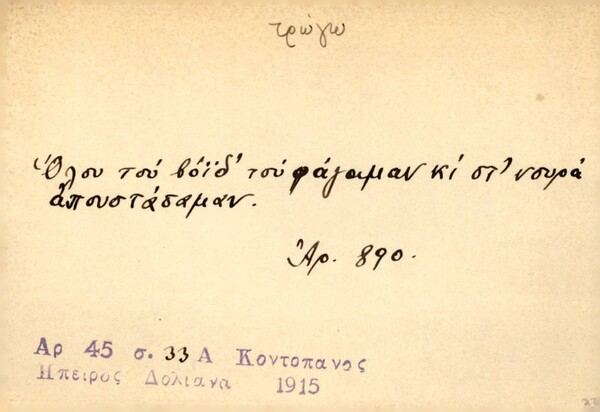 τρώγω
Ὅλου τοὐ βόϊδ' τοὐ φάγαμαν κί στ' νσυρά
ἀπουστάσαμαν.
Ἀρ. 890.
Αρ 45 σ. 33 Α Κοντοπανος
Ηπειρος Δολιανα 1915